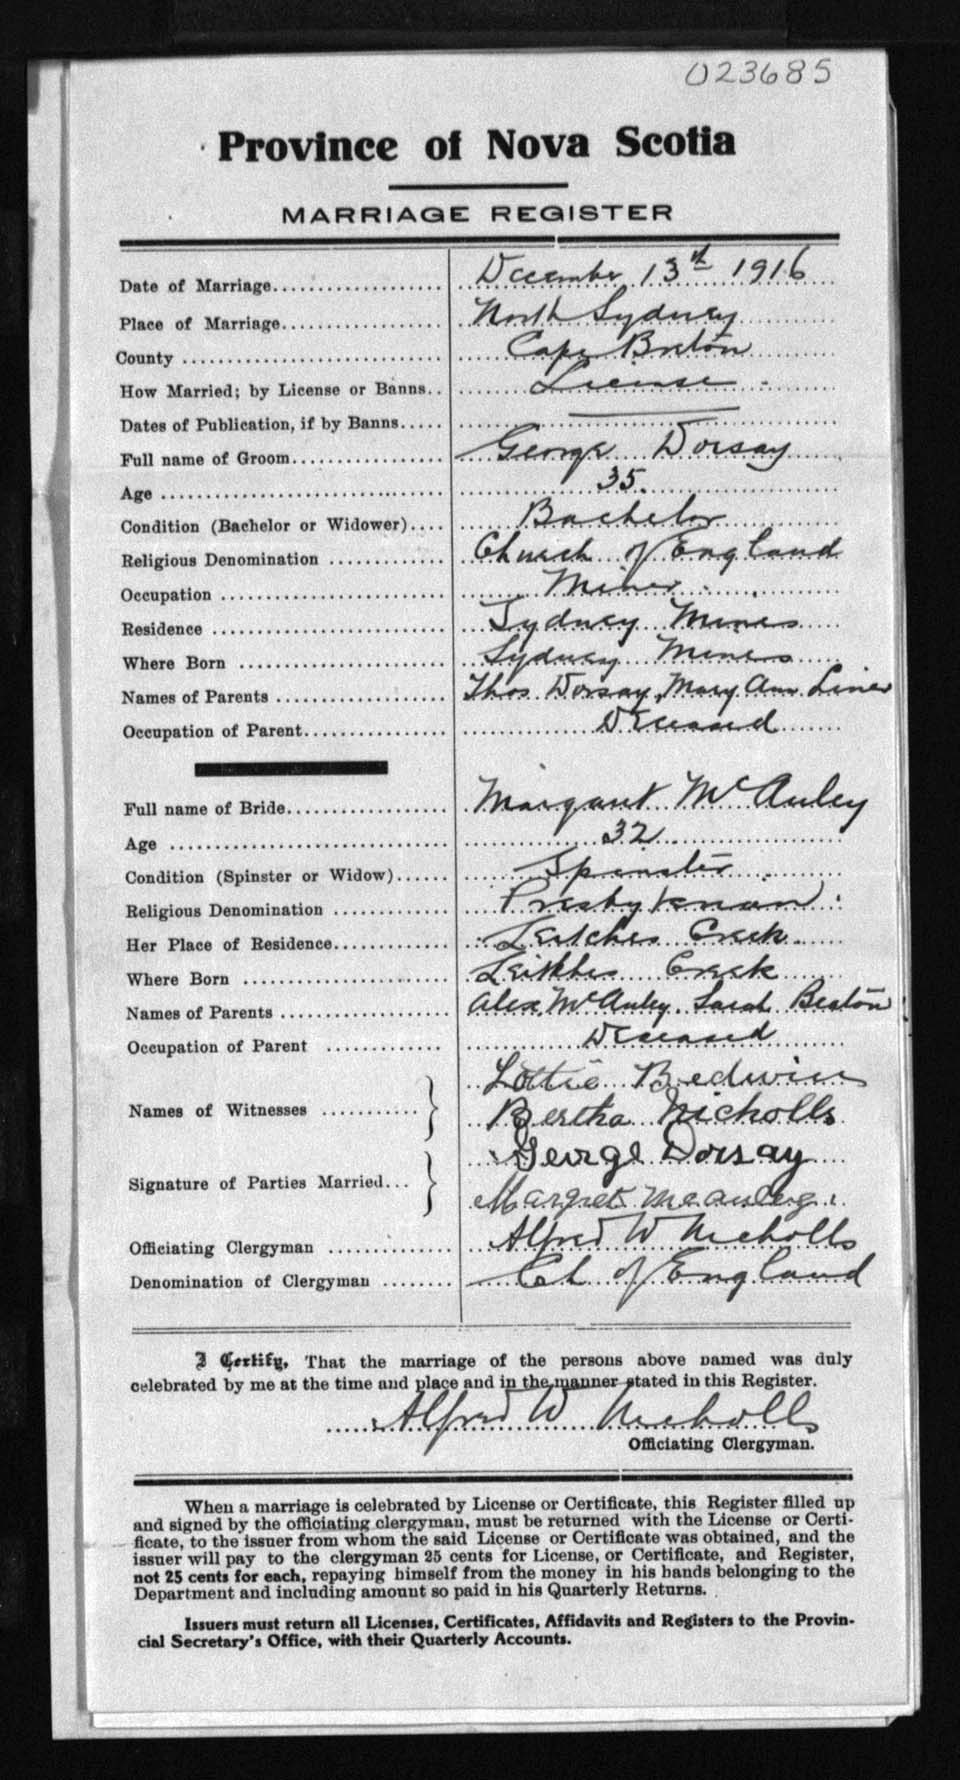 023685
Province of Nova Scotia
MARRIAGE REGISTER
Date of Marriage.................... December 13th 1916
Place of Marriage.................. North Sydney
County ............................. Cape Breton
How Married; by License or Banns.. License
Dates of Publication, if by Banns.....
Full name of Groom.................. George Dorsay
Age ................................ 35.
Condition (Bachelor or Widower).... Bachelor
Religious Denomination ............. Church of England
Occupation ......................... Miner
Residence .......................... Sydney Mines
Where Born ........................ Sydney Mines
Names of Parents ................... Thos Dorsay, Mary Ann
Occupation of Parent................ Deceased
Full name of Bride.................. Margaret McAuley
Age ................................ 32
Condition (Spinster or Widow)...... Spinster
Religious Denomination ............. Presbyterian
Her Place of Residence............. Leitches Creek
Where Born ........................ Leitches Creek
Names of Parents ................... Alex McAuley, Sarah Beaton
Occupation of Parent .............. Deceased
Lottie Bedwin
Names of Witnesses ........... } Bertha Nicholls
George Dorsay
Signature of Parties Married... }
Margret Mcauley
Officiating Clergyman .............. Alfred W Nicholls
Denomination of Clergyman ........ Ch of England
I Certify, That the marriage of the persons above named was duly
celebrated by me at the time and place and in the manner stated in this Register.
Alfred W Nicholls
Officiating Clergyman.
When a marriage is celebrated by License or Certificate, this Register filled up
and signed by the officiating clergyman, must be returned with the License or Certi-
ficate, to the issuer from whom the said License or Certificate was obtained, and the
issuer will pay to the clergyman 25 cents for License, or Certificate, and Register,
not 25 cents for each, repaying himself from the money in his hands belonging to the
Department and including amount so paid in his Quarterly Returns.
Issuers must return all Licenses, Certificates, Affidavits and Registers to the Provin-
cial Secretary's Office, with their Quarterly Accounts.